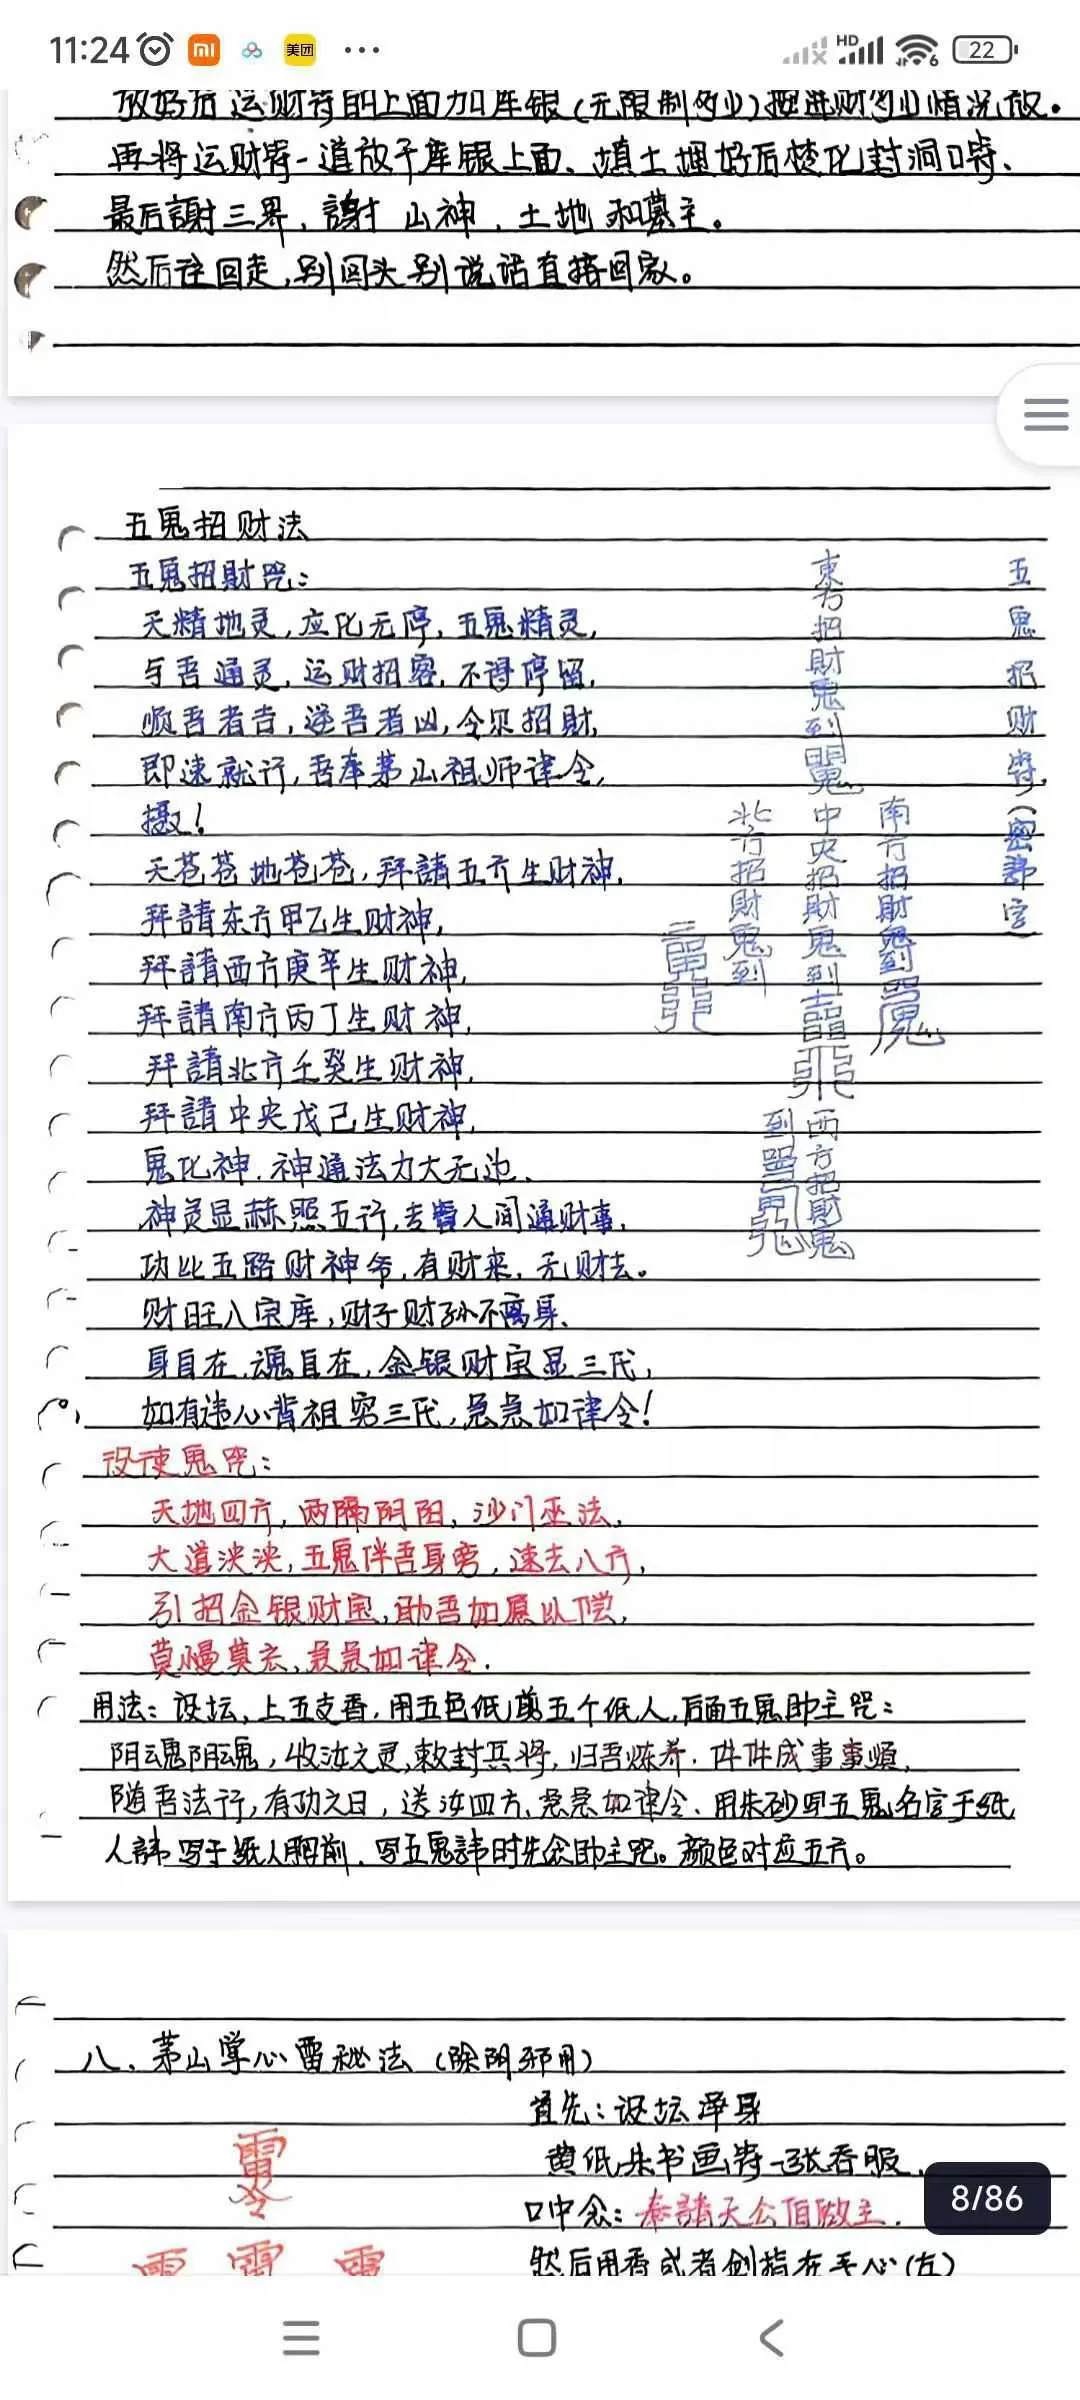 11:24
美团
HD
6
22
放好后运财符的上面加库银(无限制多少)按进财多少情况放。
再将运财符一道放于库银上面、填土埋好后焚化封洞口符、
最后謝三界,謝山神、土地和墓主。
然后往回走,别回头别说话直接回家。
五鬼招财法
五鬼招財咒:
天精地灵,应化无停,五鬼精灵,
与吾通灵,运财招客,不得停留,
顺吾者吉,逆吾者凶,令尔招財,
即速就行,吾奉茅山祖师律令,
摄!
天苍苍地苍苍,拜請五方生财神,
拜請东方甲乙生财神,
拜請西方庚辛生财神,
拜請南方丙丁生财神,
拜請北方壬癸生财神,
拜請中央戊己生财神,
鬼化神.神通法力大无边、
神灵显赫照五行,去人间通财事,
功比五路财神爷,有财来,无财去。
财旺八宝库,财子财孙不离身、
身自在,魂自在,金银财宝显三代,
如有违心背祖穷三代,急急如律令!
五鬼招财符,(密諱字)
東方招財鬼到
南方招財鬼到
中央招財鬼到
北方招財鬼到
西方招財鬼到
设使鬼咒:
天地四方,两隔阴阳,沙门巫法,
大道泱泱,五鬼伴吾身旁,速去八方,
引招金银财宝,助吾如愿以偿,
莫慢莫忘,急急如律令.
用法:设坛,上五支香,用五色纸剪五个纸人,后面五鬼助主咒:
阴魂阴魂,收汝之灵,敕封兵将,归吾炼养.件件成事事順,
随吾法行,有功之日,送汝四方、急急如律令.用朱砂写五鬼名字于纸
人諱写于纸人胸前.写五鬼諱时先念助主咒。颜色对应五方。
八、茅山掌心雷秘法(除阴邪用)
首先:设坛净身
黄纸朱书画符一张吞服、
口中念:奉請天公伯做主.
然后用香或者剑指在手心(左)
雷令
雷 雷 雷
8/86